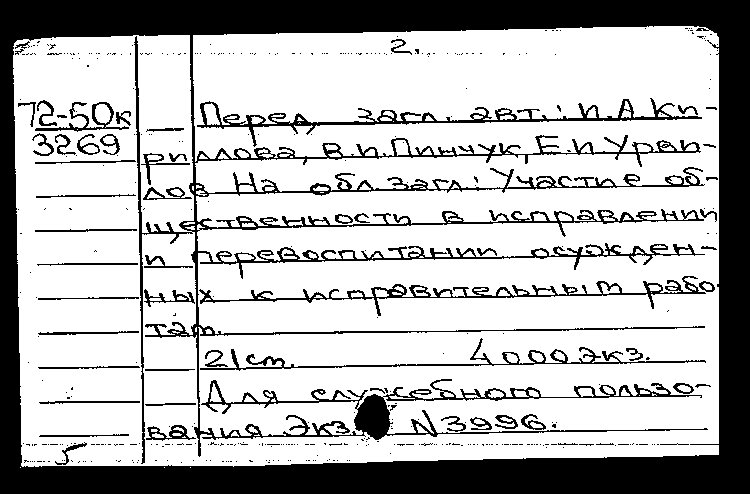 2.
72-50к Перед загл. авт.: И.А Ки-
3269 риллова, В.И.Пинчук, Е.И Урви-
лов На обл. загл.: Участие об-
щественности в исправлении
и перевоспитании осужден-
ных к исправительным рабо-
там.
21 ст. 4000 экз.
Для служебного пользо-
вания. Экз. N3996.
5